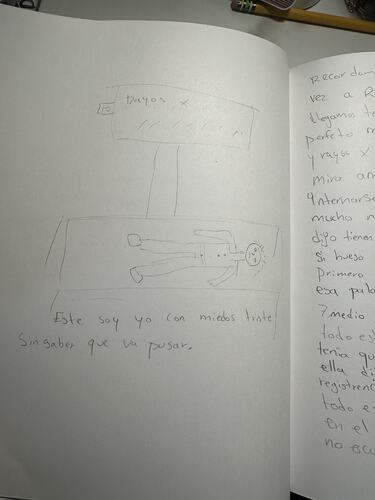 Rayos X
Este soy yo con miedos triste
Sin saber que va pasar.
recordam
vez a R
llegamos te
perfecto m
y rayos X
mira am
Internarse
mucho n
dijo tienen
Si hueso
primero
esa pala
7.medio
todo est
tenia qu
ella di
registren
todo e
en el
no escu